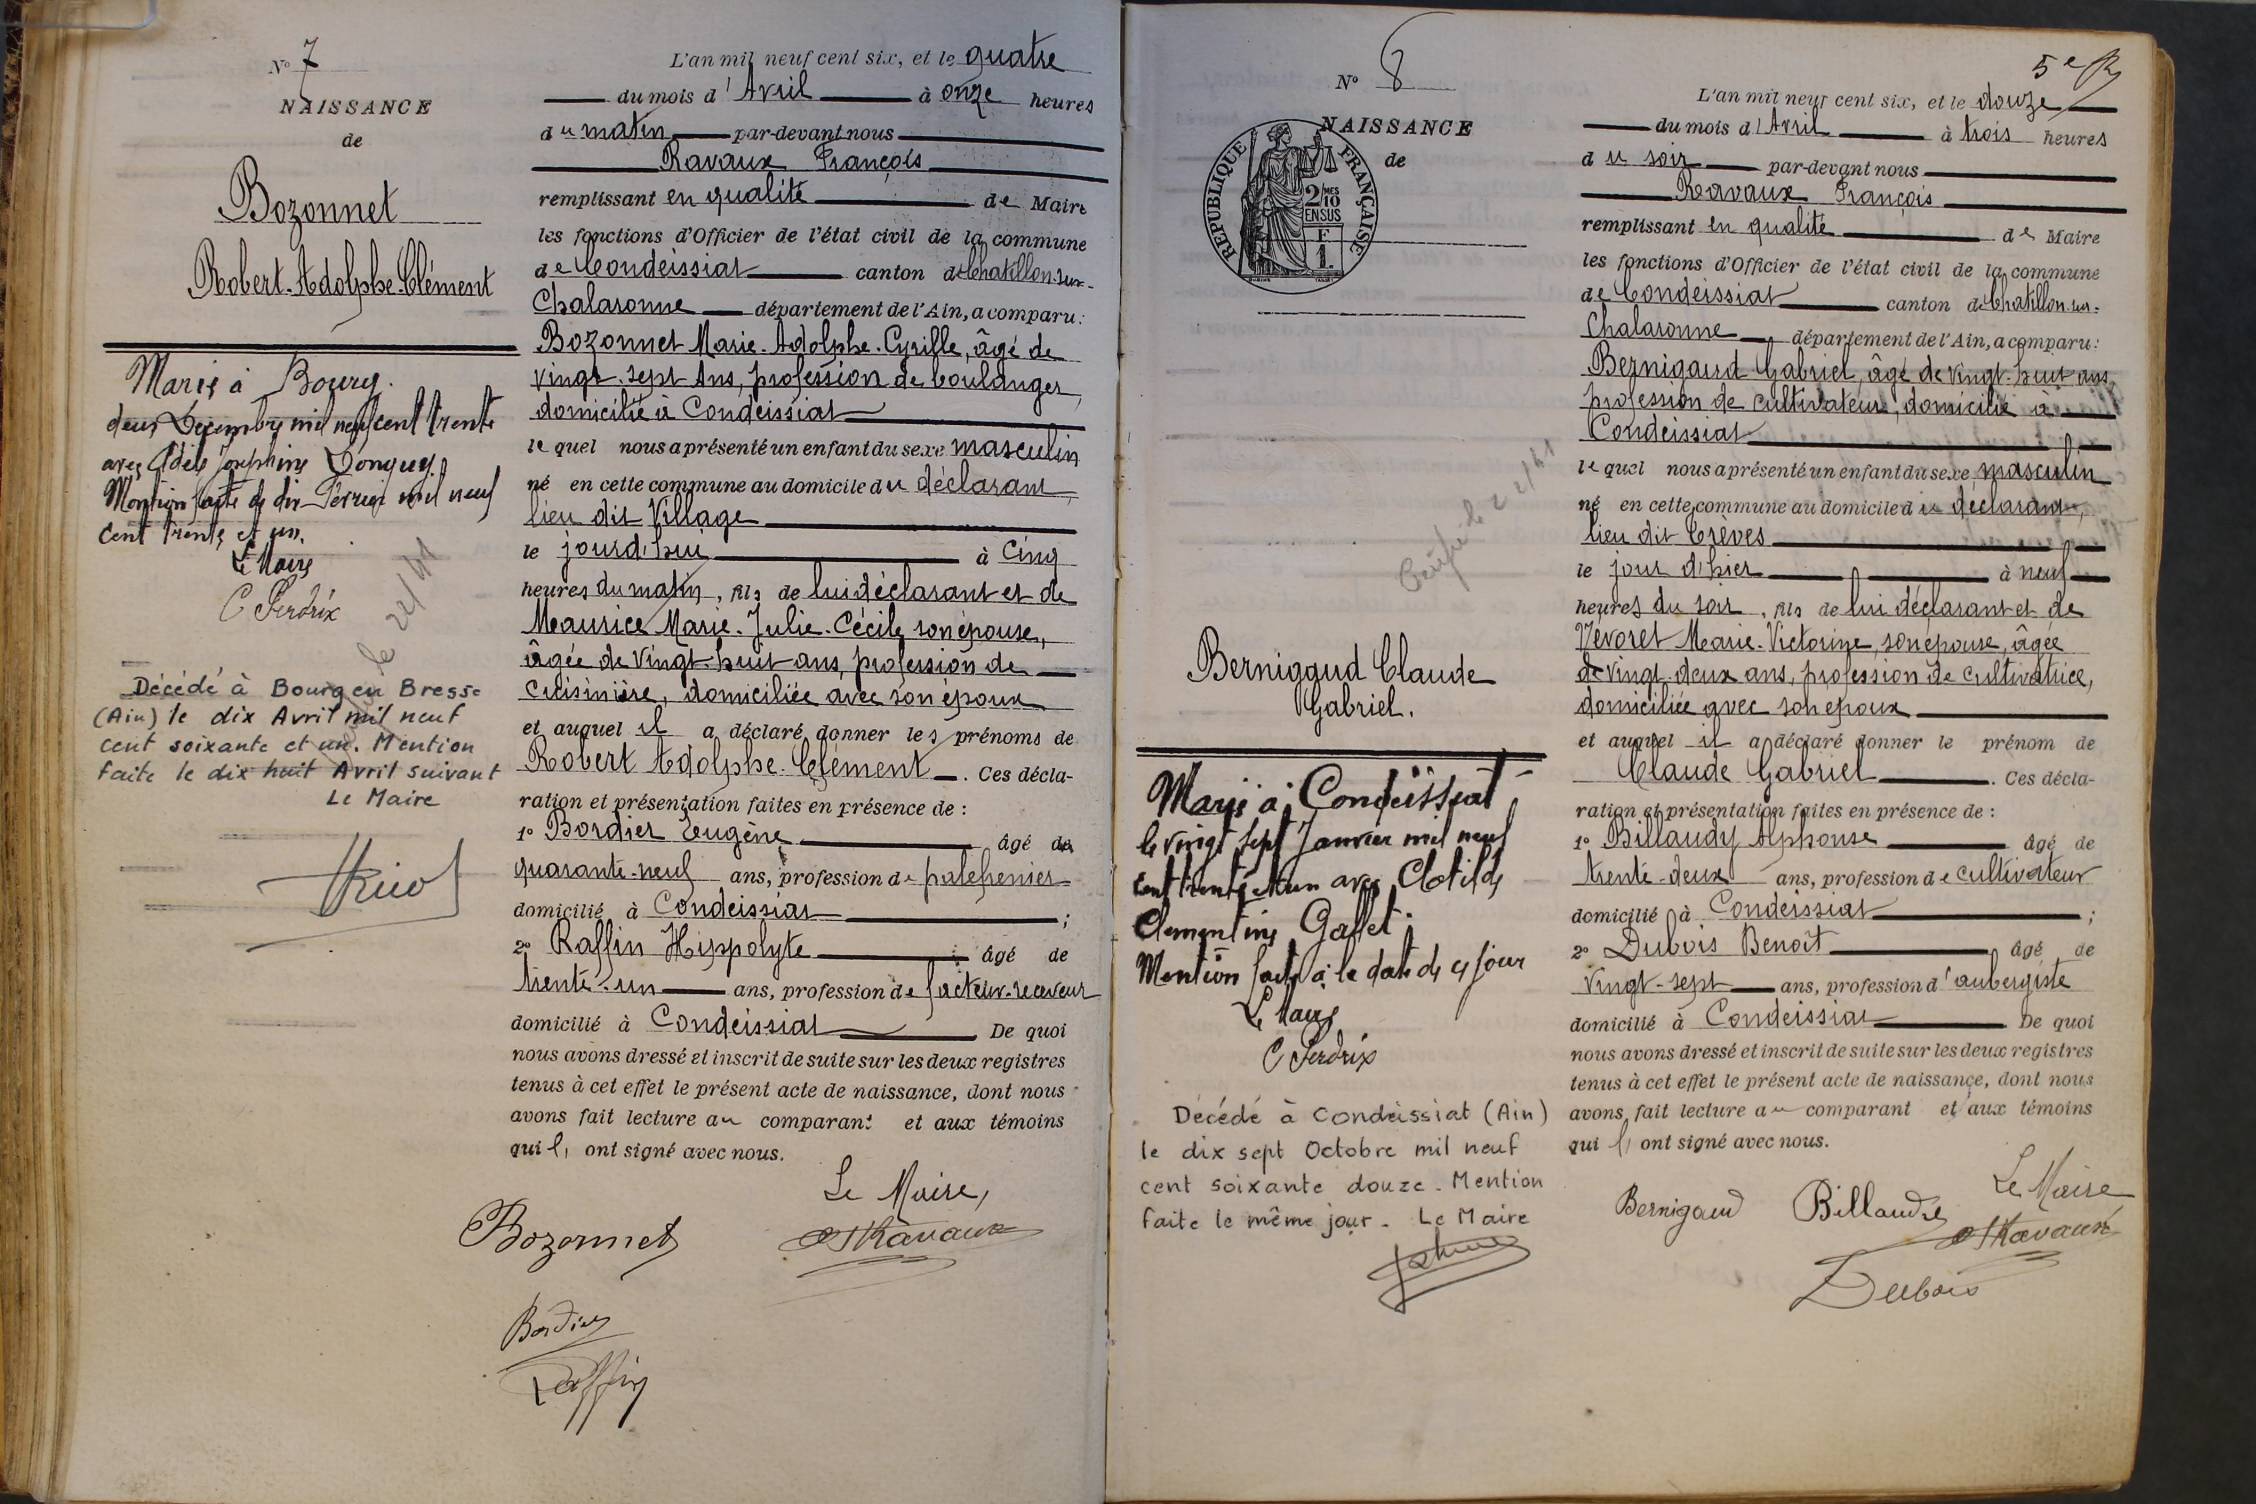 N° 7
NAISSANCE
de
Bozonnet
Robert-Adolphe-Clément
Marié à Bourg
deux Décembre mil neuf cent trente
avec Adèle Joséphine Donguy.
Mention faite le dix Février mil neuf
cent trente et un.
Le Maire
C Perdrix
Décédé à Bourg en Bresse
(Ain) le dix Avril mil neuf
cent soixante et un. Mention
faite le dix huit Avril suivant
Le Maire
L'an mil neuf cent six, et le quatre
du mois d'Avril à onze heures
du matin par-devant nous
Ravaux François
remplissant en qualité de Maire
les fonctions d'Officier de l'état civil de la commune
de Condeissiat canton de Chatillon-sur-
Chalaronne département de l'Ain, a comparu:
Bozonnet Marie-Adolphe-Cyrille, âgé de
vingt-sept ans, profession de boulanger,
domicilié à Condeissiat
lequel nous a présenté un enfant du sexe masculin
né en cette commune au domicile du déclarant,
lieu dit Village
le jourd'hui à cinq
heures du matin, fils de lui déclarant et de
Maurice Marie-Julie-Cécile son épouse,
âgée de vingt-huit ans, profession de
cuisinière, domiciliée avec son époux
et auquel il a déclaré donner les prénoms de
Robert Adolphe-Clément. Ces décla-
ration et présentation faites en présence de :
1° Bordier Eugène âgé de
quarante-neuf ans, profession de palefrenier
domicilié à Condeissiat ;
2° Raffin Hippolyte âgé de
trente-un ans, profession de facteur-receveur
domicilié à Condeissiat De quoi
nous avons dressé et inscrit de suite sur les deux registres
tenus à cet effet le présent acte de naissance, dont nous
avons fait lecture au comparant et aux témoins
qui l'ont signé avec nous.
Le Maire,
Bozonnet Ravaux
Bordier
Raffin
5e
N° 8
NAISSANCE
de
REPUBLIQUE FRANÇAISE
2 MES
10
EN SUS
F
1
Bernigaud Claude
Gabriel.
Marié à Condeissiat
le vingt sept Janvier mil neuf
cent trente et un avec Clotilde
Clementine Gallet.
Mention faite à la date de ce jour
Le Maire
C Perdrix
Décédé à Condeissiat (Ain)
le dix sept Octobre mil neuf
cent soixante douze. Mention
faite le même jour. Le Maire
L'an mil neuf cent six, et le douze
du mois d'Avril à trois heures
du soir par-devant nous
Ravaux François
remplissant en qualité de Maire
les fonctions d'Officier de l'état civil de la commune
de Condeissiat canton de Chatillon-sur-
Chalaronne département de l'Ain, a comparu:
Bernigaud Gabriel, âgé de vingt-huit ans,
profession de cultivateur, domicilié à
Condeissiat
lequel nous a présenté un enfant du sexe masculin
né en cette commune au domicile du déclarant,
lieu dit Crèves
le jour d'hier à neuf
heures du soir, fils de lui déclarant et de
Névoret Marie-Victorine, son épouse, âgée
de vingt-deux ans, profession de cultivatrice,
domiciliée avec son époux
et auquel il a déclaré donner le prénom de
Claude Gabriel. Ces décla-
ration et présentation faites en présence de :
1° Billaudy Alphonse âgé de
trente-deux ans, profession de cultivateur
domicilié à Condeissiat ;
2° Dubois Benoît âgé de
vingt-sept ans, profession d'aubergiste
domicilié à Condeissiat De quoi
nous avons dressé et inscrit de suite sur les deux registres
tenus à cet effet le présent acte de naissance, dont nous
avons fait lecture au comparant et aux témoins
qui l'ont signé avec nous.
Le Maire
Bernigaud Billaudy Ravaux
Dubois